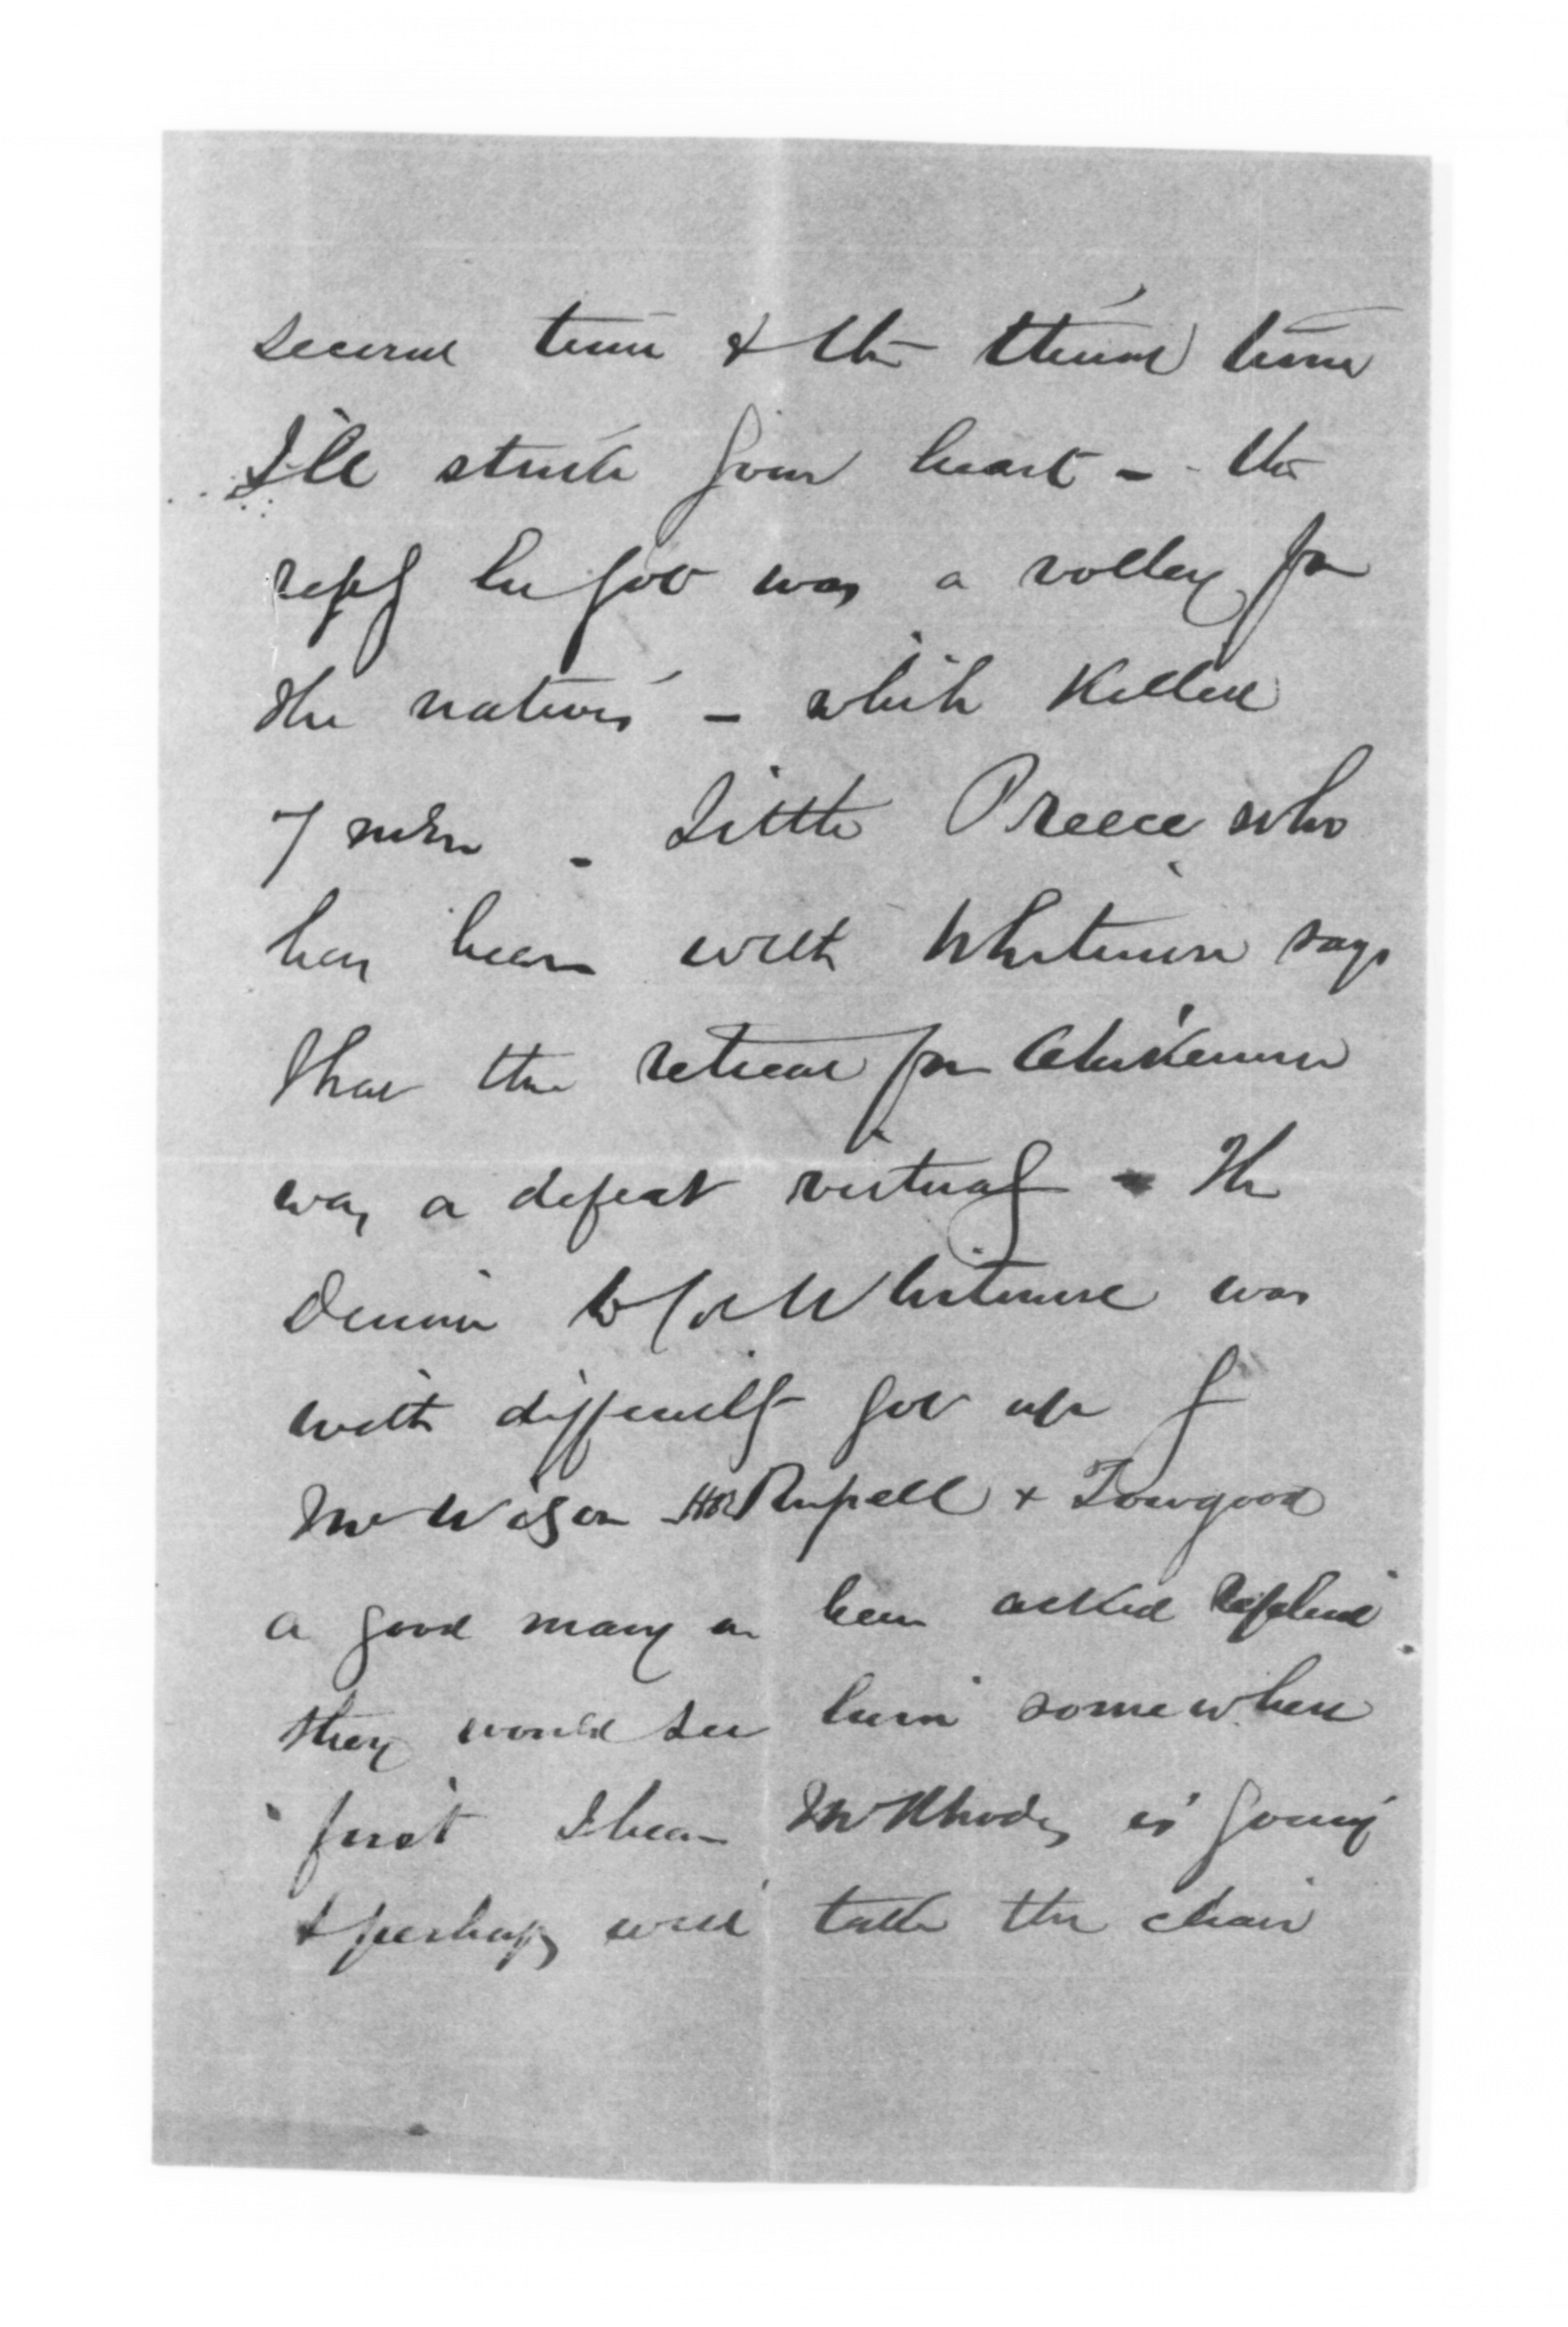 second time & the third time
I'll strike your heart - the
reply he got was a volley fm
the natives - which killed
7 men - Little Preece who
has been with Whitmore says
that the retreat fm
was a defeat virtual - The
dinner to Col Whitmore was
with difficulty got up by
Mr Wilson HR Russell & Towgood
a good many on been asked replied
they would see him somewhere
first I hear Mr Rhodes is going
& perhaps will take the chair